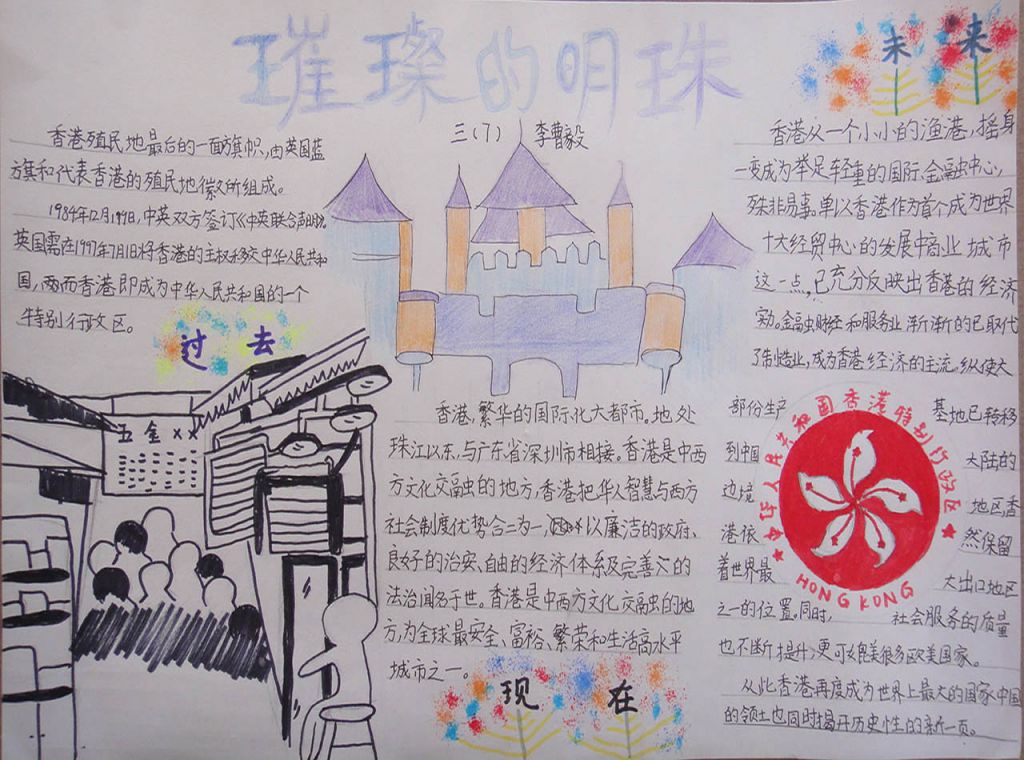 璀璨的明珠
三(7) 李曹毅
香港殖民地最后的一面旗帜,由英国蓝
旗和代表香港的殖民地徽所组成。
1984年12月19日,中英双方签订《中英联合声明》。
英国需在1997年7月1日将香港的主权移交中华人民共和
国,而香港即成为中华人民共和国的一个
特别行政区。
过去
五金××
香港,繁华的国际化大都市。地处
珠江以东,与广东省深圳市相接。香港是中西
方文化交融的地方,香港把华人智慧与西方
社会制度优势合二为一,以廉洁的政府、
良好的治安、自由的经济体系及完善的
法治闻名于世。香港是中西方文化交融的地
方,为全球最安全、富裕、繁荣和生活高水平
城市之一。
现在
未来
香港从一个小小的渔港,摇身
一变成为举足轻重的国际金融中心,
殊非易事。单以香港作为首个成为世界
十大经贸中心的发展中商业城市
这一点,已充分反映出香港的经济
效。金融财经和服务业渐渐的已取代
了制造业,成为香港经济的主流。纵使大
部份生产 基地已转移
到中国 大陆的
边境 地区香
港依 然保留
着世界最 大出口地区
之一的位置。同时, 社会服务的质量
也不断提升,更可媲美很多欧美国家。
从此香港再度成为世界上最大的国家中国
的领土也同时揭开历史性的新一页。
中华人民共和国香港特别行政区
HONG KONG